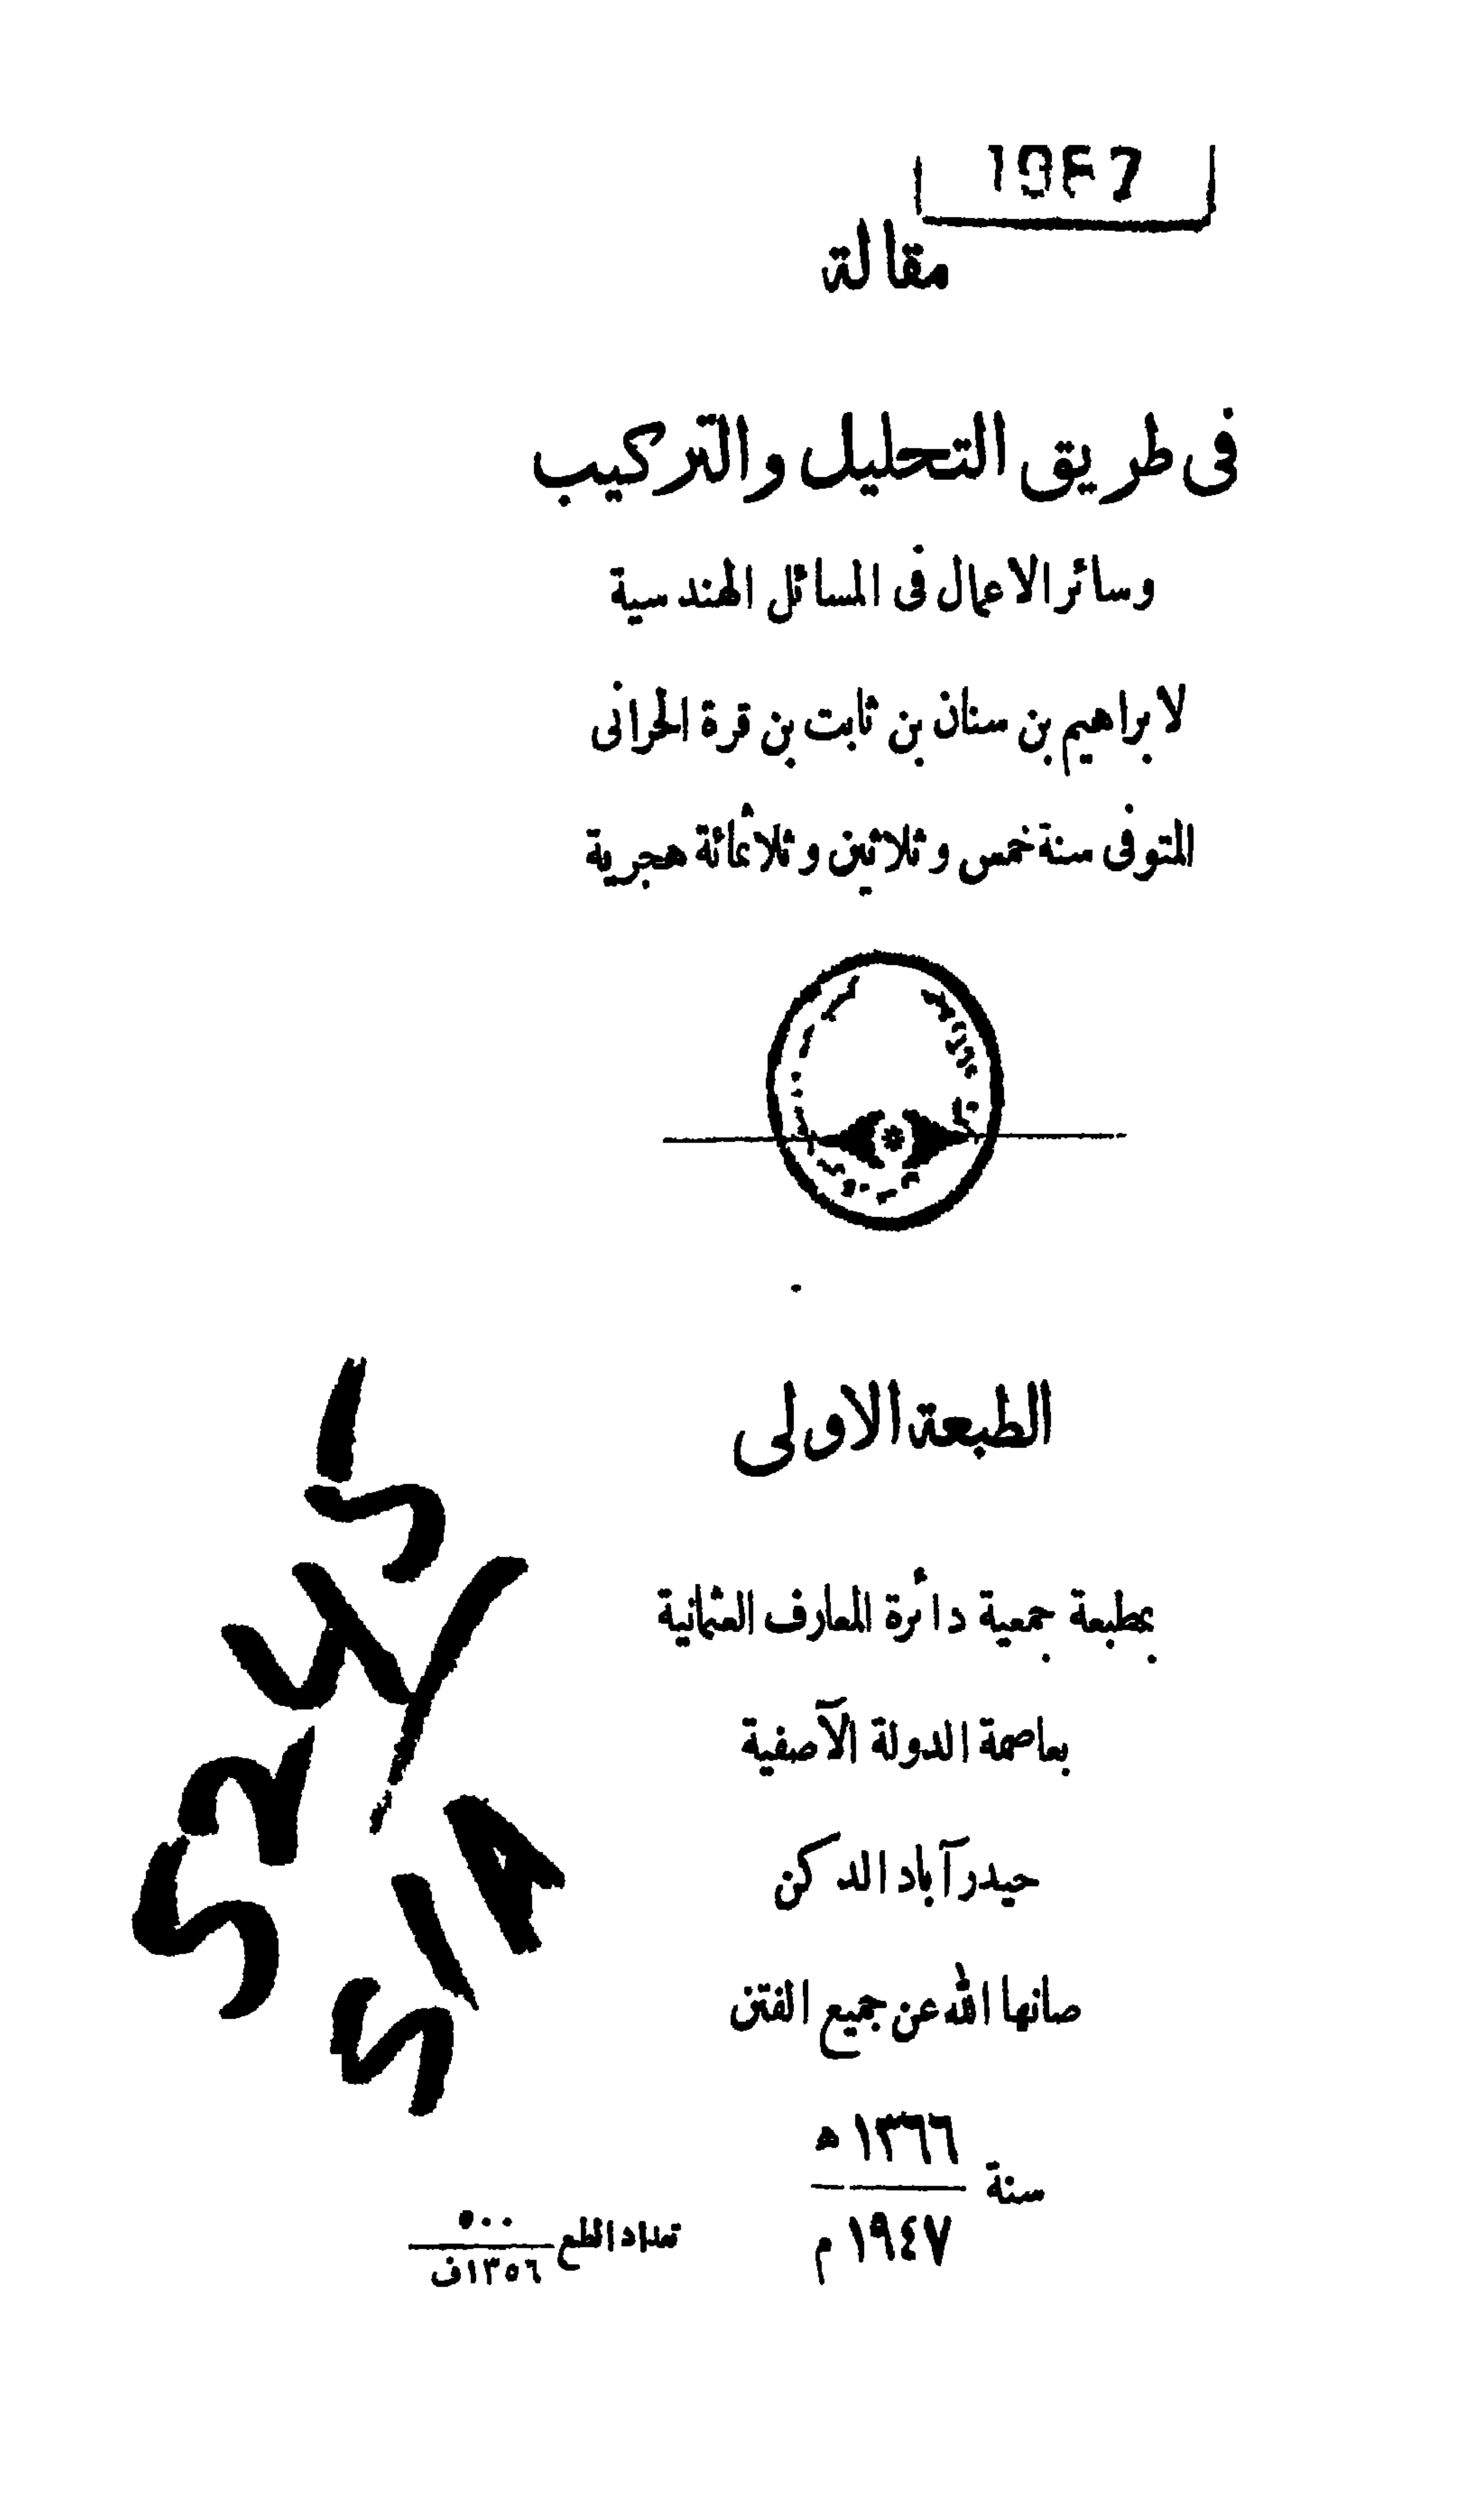 مقالة
فى طريق التحليل والتركيب
وسائر الاعمال فى المسائل الهندسية
لابراهيم بن سنان بن ثابت بن قرة الحرانى
المتوفى سنة خمس وثلاثين وثلاثمائة هجرية
الطبعة الاولى
بمطبعة جمعية دائرة المعارف العثمانية
بعاصمة الدولة الآصفية
حيدرآباد الدكن
صانها الله عن جميع الفتن
سنة ١٣٦٦ه
١٩٤٧م
تعداد الطبع ٥٠٠
١٣٥٦ف